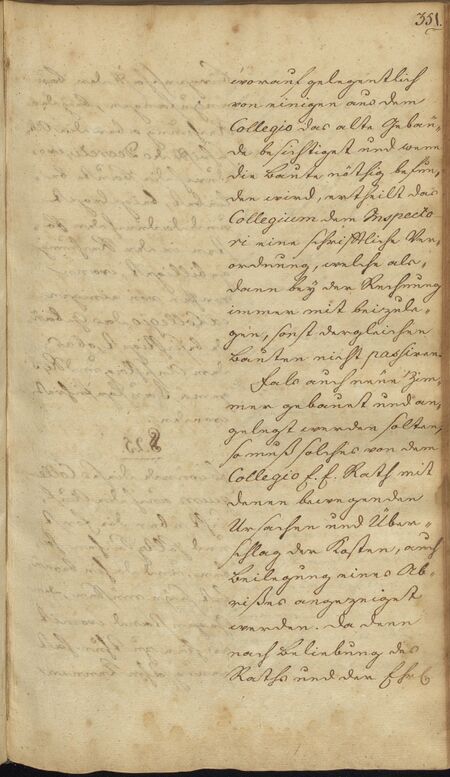 351.
worauf gelegentlich
von einigen aus dem
Collegio das alte Gebäu-
de besichtiget und wenn
die Baute nöthig befun-
den wird, ertheilt das
Collegium dem Inspecto-
ri eine schrifftliche Ver-
ordnung, welche als-
dann bey der Rechnung
immer mit beizule-
gen, sonst dergleichen
Bauten nicht passiren.
Fals auch neue Zim-
mer gebauet und an-
gelegt werden solten,
so muß solches von dem
Collegio E. E. Rath mit
denen bewegenden
Ursachen und Über-
schlag der Kosten, auch
Beilegung eines Ab-
rißes angezeiget
werden. Da denn
nach Beliebung des
Raths und der Ehr